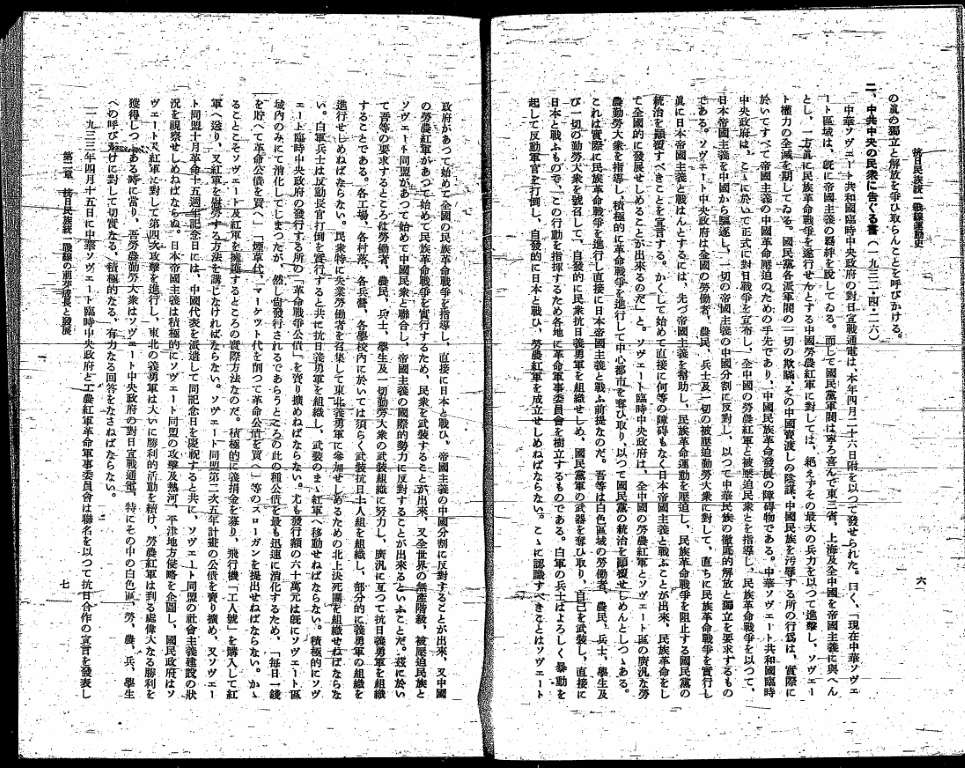 抗日民族統一戰線運動史
六
の眞の獨立と解放を爭ひ取らんことを呼びかける。
二、中共中央の民衆に告ぐる書(一九三二・四・二六)
中華ソヴェート共和國臨時中央政府の對日宣戰通電は、本年四月二十六日附を以つて發せられた。曰く、「現在中華ソヴェ
ート區域は、旣に帝國主義の羈絆を脫してゐる。而して國民黨軍閥は寧ろ喜んで東三省、上海及全中國を帝國主義に與へん
とし、一方眞に民族革命戰爭を遂行せんとする中國勞農紅軍に對しては、絕えずその最大の兵力を以つて進擊し、ソヴェー
ト權力の全滅を期してゐる。國民黨各派軍閥の一切の欺瞞、その中國賣渡しの陰謀、中國民族を汚辱する所の行爲は、實際に
於いてすべて帝國主義の中國革命壓迫のための手先であり、中國民族革命發展の障碍物である。中華ソヴェート共和國臨時
中央政府は、こゝに於いて正式に對日戰爭を宣布し、全中國の勞農紅軍と被壓迫民衆とを指導し、民族革命戰爭を以つて、
日本帝國主義を中國から驅逐し、一切の帝國主義の中國分割に反對し、以つて中華民族の徹底的解放と獨立を要求するもの
である。ソヴェート中央政府は全國の勞働者、農民、兵士及一切の被壓迫勤勞大衆に對して、直ちに民族革命戰爭を實行し
眞に日本帝國主義と戰はんとするには、先づ帝國主義を幇助し、民族革命運動を壓迫し、民族革命戰爭を阻止する國民黨の
統治を顚覆すべきことを宣言する。かくして始めて直接に何等の障碍もなく日本帝國主義と戰ふことが出來、民族革命をし
て全國的に發展せしめることが出來るのだ」と。ソヴェート臨時中央政府は、全中國の勞農紅軍とソヴェート區の廣汎な勞
農勤勞大衆を指導し、積極的に革命戰爭を進行して中心都市を奪ひ取り、以つて國民黨の統治を顚覆せしめんとしつゝある。
これは實際に民族革命戰爭を進行し直接に日本帝國主義と戰ふ前提なのだ。吾等は白色區域の勞働者、農民、兵士、學生及
び一切の勤勞大衆を號召して、自發的に民衆抗日義勇軍を組織せしめ、國民黨軍の武器を奪ひ取り、自己を武裝し、直接に
日本と戰ふもので、この行動を指揮するため各地に革命軍事委員會を樹立するものである。白軍の兵士はよろしく暴動を
起して反動軍官を打倒し、自發的に日本と戰ひ、勞農紅軍を成立せしめねばならない。こゝに認識すべきことはソヴェート
政府があつて始めて全國の民族革命戰爭を指導し、直接に日本と戰ひ、帝國主義の中國分割に反對することが出來、又中國
の勞農紅軍があつて始めて民族革命戰爭を實行するため、民衆を武裝することが出來、又全世界の無產階級、被壓迫民族と
ソヴェート同盟があつて始めて中國民衆と聯合し、帝國主義の國際的勢力に反對することが出來るといふことで。玆に於い
て吾等の要求するところは勞働者、農民、兵士、學生及一切勤勞大衆の武裝組織に努力し、廣汎に亙つて抗日義勇軍を組織
することである。各工場、各村落、各兵營、各學校內に於いては須らく武裝抗日十人組を組織し、部分的に義勇軍の組織を
進行せしめねばならない。民衆特に失業勞働者を召集して東北義勇軍に參加せしめるための北上決死團を組織せねばならな
い。白軍兵士は反動長官打倒を實行すると共に抗日義勇軍を組織し、武裝のまゝ紅軍へ移動せねばならない。積極的にソヴ
ェート臨時中央政府の發行する所の「革命戰爭公債」を賣り擴めねばならない。尤も發行額の六十萬元は旣にソヴェート區
域內のみにて消化してしまつたが、然し當發行されるであらうところの此の種公債を最も迅速に消化するため、「每日一錢
を貯へて革命公債を買へ」「煙草代、マーケツト代を削つて革命公債を買へ」等のスローガンを提出せねばならない。かゝ
ることこそソヴェート及紅軍を擁護するところの實際方法なのだ。積極的に義捐金を募り、飛行機「工人號」を購入して紅
軍へ送り、又紅軍を慰勞する方法を講じなければならない。ソヴェート同盟第二次五年計畫の公債を賣り擴め、又ソヴェー
ト同盟十月革命十五週年記念日には、中國代表を派遣して同記念日を慶祝すると共に、ソヴェート同盟の社會主義建設の狀
況を視察せしめねばならぬ。日本帝國主義は積極的にソヴェート同盟の攻擊及熱河、平津地方侵略を企圖し、國民政府はソ
ヴェートと紅軍に對して第四次攻擊を進行し、東北の義勇軍は大いに勝利的活動を續け、勞農紅軍は到る處偉大なる勝利を
獲得しつゝある時に當り、吾等勤勞大衆はソヴェート中央政府の對日宣戰通電、特にその中の白色區、勞、農、兵、學生
への呼びかけに對して切實なる、積極的なる、有力なる回答をなさねばならない。
一九三三年四月十五日に中華ソヴェート臨時中央政府と工農紅軍革命軍事委員會は聯名を以つて抗日合作の宣言を發表し
第二章 抗日民族統一戰線の前芽成長と發展
七